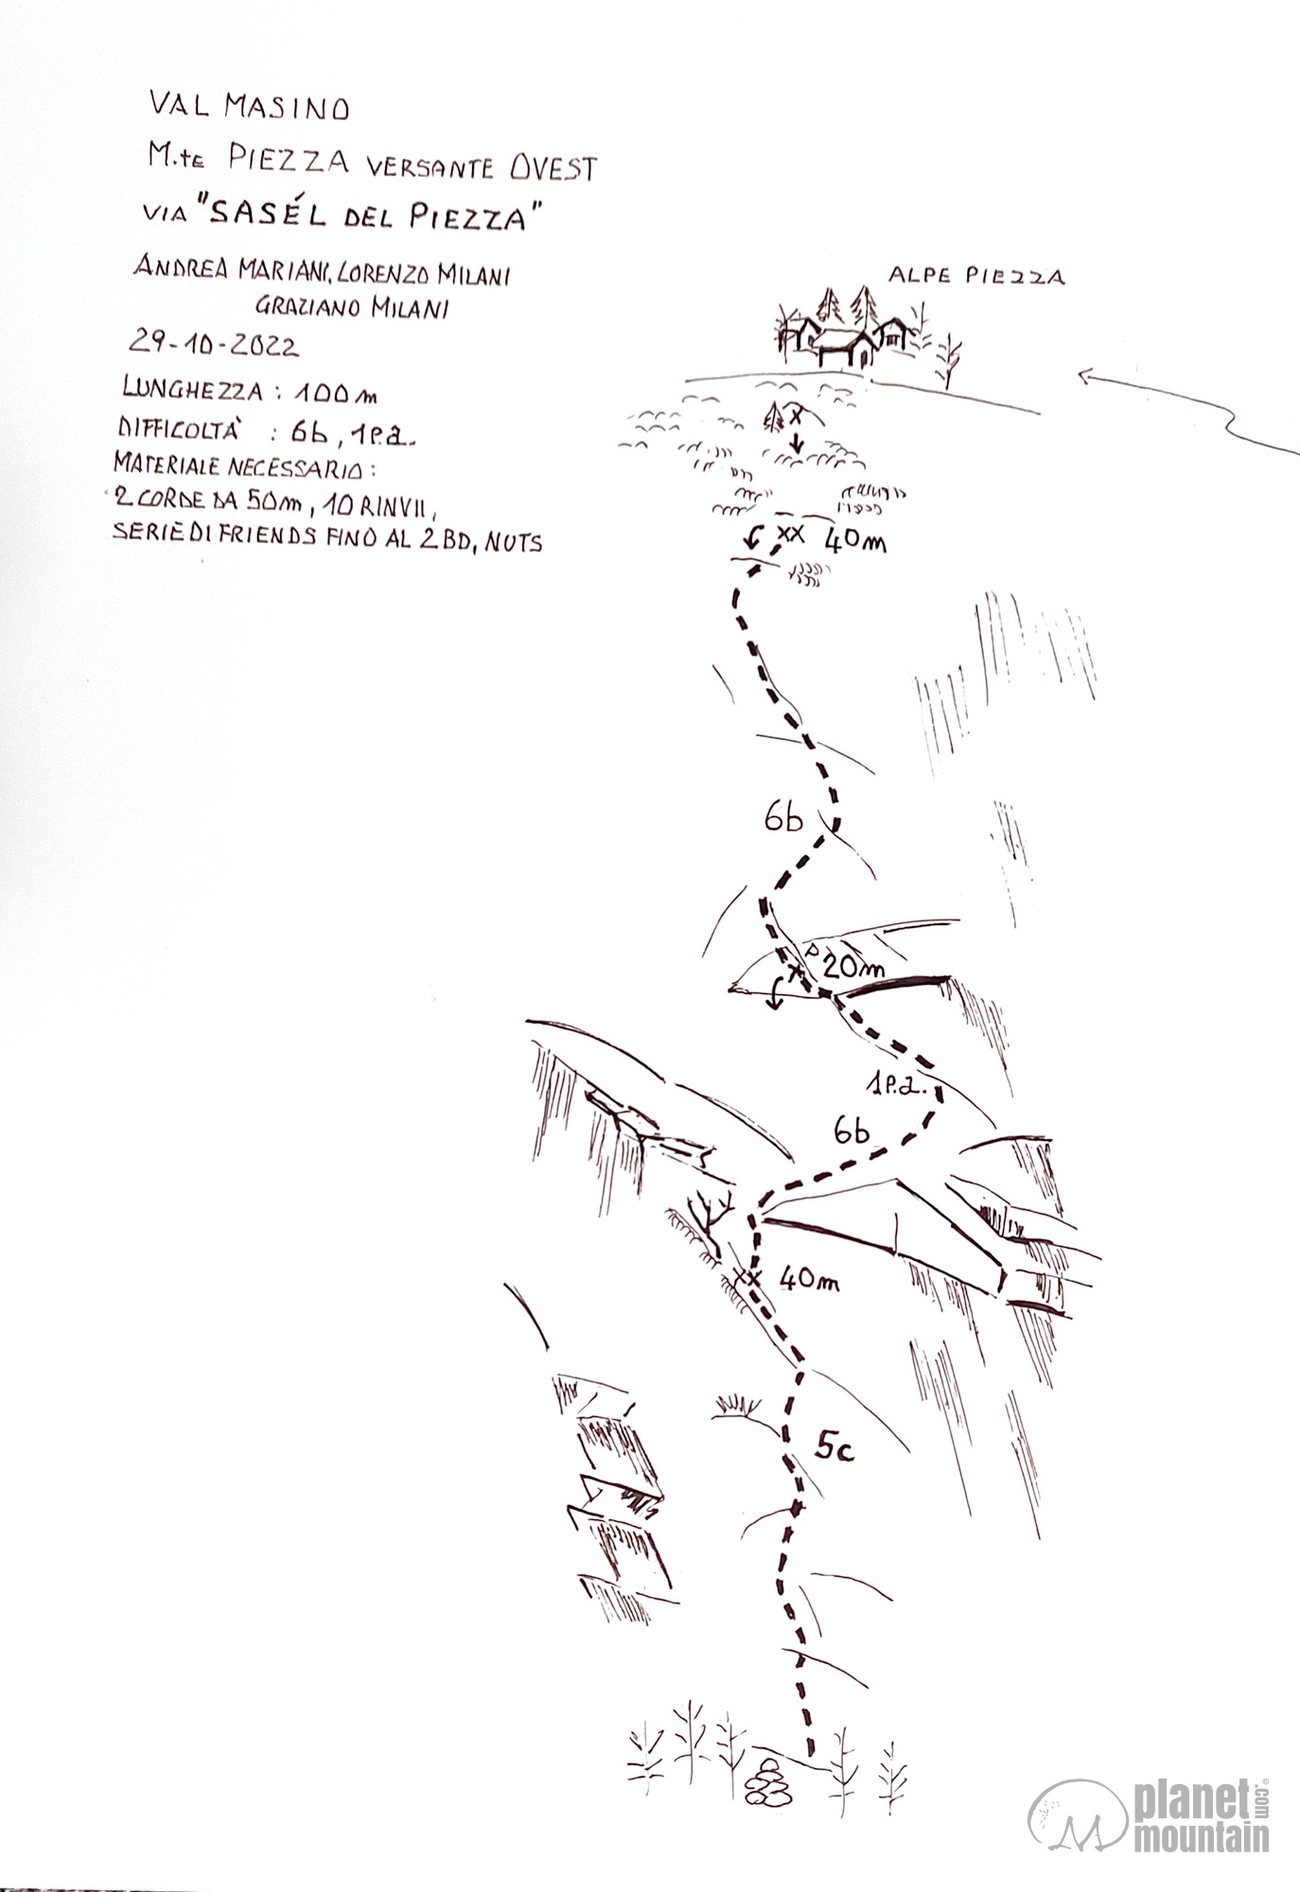 VAL MASINO
M.te PIEZZA VERSANTE OVEST
VIA "SASÉL DEL PIEZZA"
ANDREA MARIANI, LORENZO MILANI
GRAZIANO MILANI
29-10-2022
LUNGHEZZA : 100 m
DIFFICOLTÀ : 6b, 1P.a.
MATERIALE NECESSARIO :
2 CORDE DA 50m, 10 RINVII,
SERIE DI FRIENDS FINO AL 2 BD, NUTS
ALPE PIEZZA
X
XX 40m
6b
P 20m
X
1P.a.
6b
XX 40m
5c
planet
mountain
.com